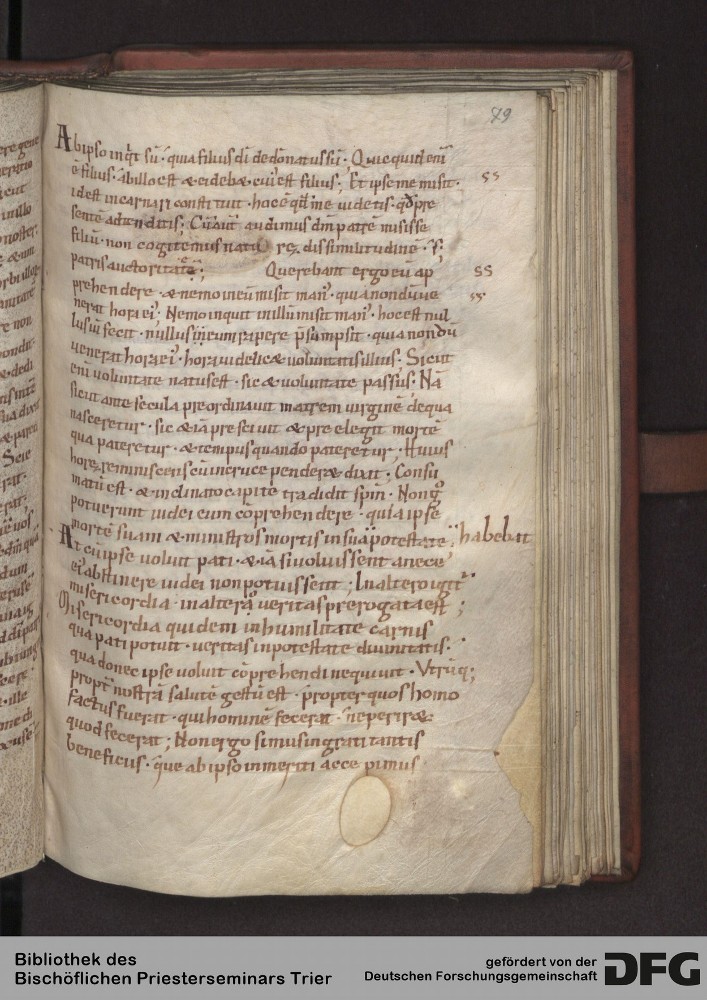 49
Ab ipso inq̄t sū · quia filius dī de dō natus sū · Quicquid enī
ē filius · ab illo est & ei debet cui est filius ; Et ipse me misit ·
id est incarnari constituit · hoc ē qd me uidetis · qd pre
sentē adtenditis ; Cū aut audimus dm patrē misisse
filiū · non cogitemus naturę dissimilitudinē · s;
patris auctoritatē ; Querebant ergo eū ap
prehendere · & nemo in eū misit man' · quia nondū ue
nerat hora ei' ; Nemo inquit in illum misit man' · hoc est nul
lus ui fecit · nullus eum rapere p̄sumpsit · quia nondū
uenerat hora ei' · hora uidelic& uoluntatis illius ; Sicut
enī uoluntate natus est · sic & uoluntate passus ; Nā
sicut ante secula preordinauit matrem uirginē de qua
nasceretur · sic & iā presciuit & preelegit mortē
qua pateretur · & tempus quando pateretur ; Huius
horę reminisceris cū in cruce pender& dixit ; Consū
matū est · & inclinato capite tradidit spm · Non g°
potuerunt iudei eum cōprehendere · quia ipse
mortē suam & ministros mortis in sua potestate habebat
At cū ipse uoluit pati · & iā si uoluissent a nece
ei' abstinere iudei non potuissent ; In altero igit
misericordia · in altera ueritas prerogata est ;
Misericordia quidem in humilitate carnis
qua pati potuit · ueritas in potestate diuinitatis ·
qua donec ipse uoluit cōprehendi nequiuit · Vtrūq;
propt' nostrā salutē gestū est · propter quos homo
factus fuerat · qui hominē fecerat · ne perir&
quod fecerat ; Non ergo simus ingrati tantis
beneficiis · que ab ipso inmeriti accepimus
ss
ss
ss
Bibliothek des
Bischöflichen Priesterseminars Trier
gefördert von der
Deutschen Forschungsgemeinschaft
DFG